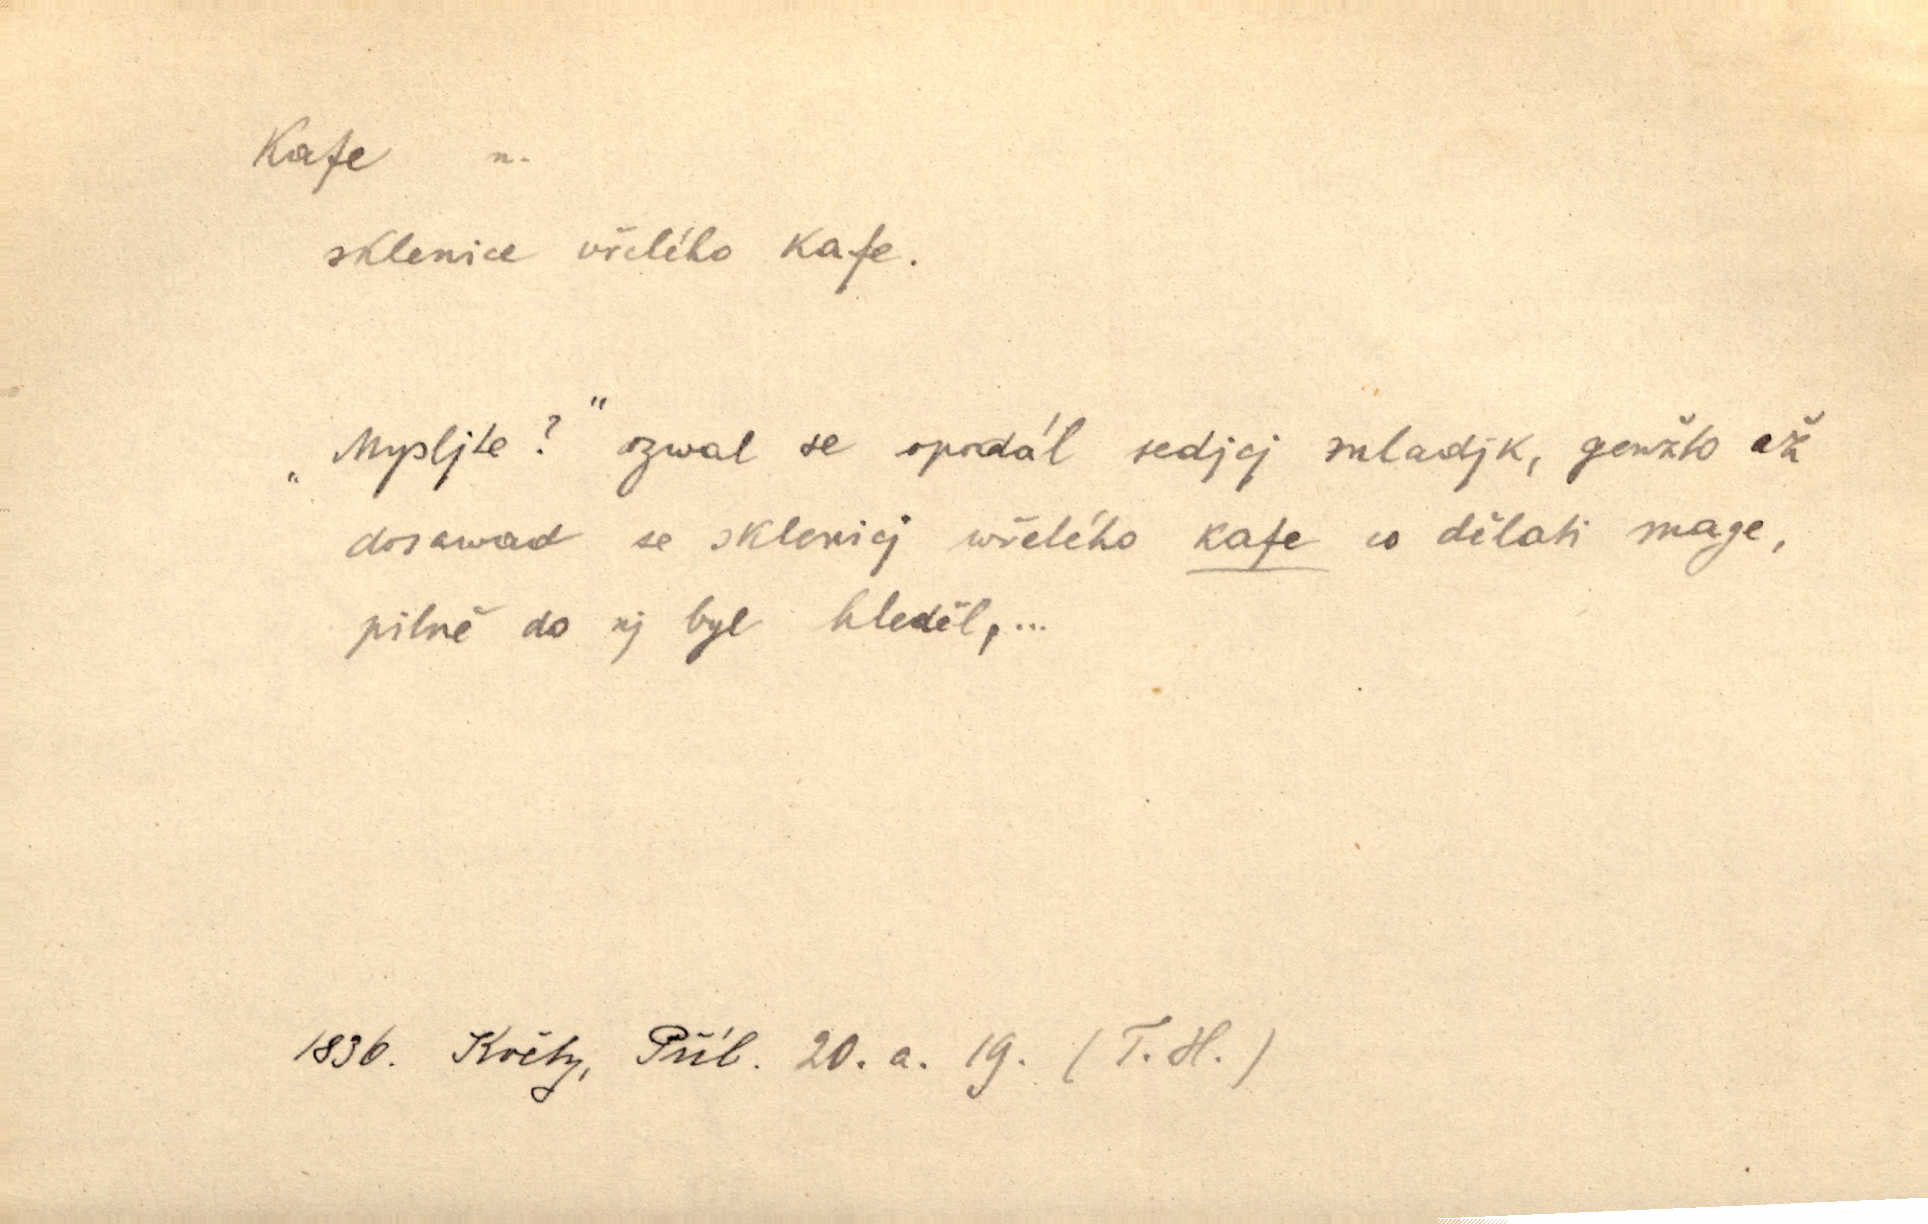 Kafe n.
sklenice vřelého kafe.
„Mysljte?" ozwal se opodál sedjcj mladjk, genžto až
dosawad se sklenicj wřelého kafe co dělati mage,
pilně do nj byl hleděl,...
1836. Květy, Příl. 20. a. 19. (T. H.)